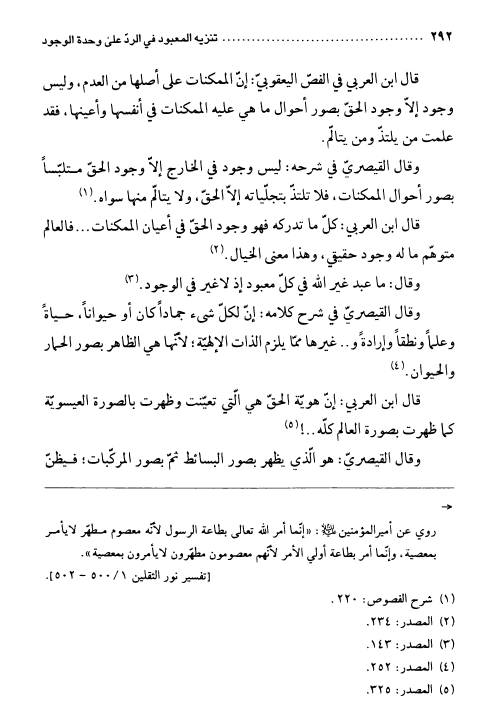 ٢٩٢ .......................................... تنزيه المعبود في الردّ على وحدة الوجود
قال ابن العربي في الفصّ اليعقوبيّ: إنّ الممكنات على أصلها من العدم، وليس
وجود إلاّ وجود الحقّ بصور أحوال ما هي عليه الممكنات في أنفسها وأعينها، فقد
علمت من يلتذّ ومن يتالّم.
وقال القيصريّ في شرحه: ليس وجود في الخارج إلاّ وجود الحقّ متلبّساً
بصور أحوال الممكنات، فلا تلتذّ بتجلّياته إلاّ الحقّ، ولا يتالّم منها سواه.(١)
قال ابن العربي: كلّ ما تدركه فهو وجود الحقّ في أعيان الممكنات... فالعالم
متوهّم ما له وجود حقيقي، وهذا معنى الخيال.(٢)
وقال: ما عبد غير الله في كلّ معبود إذ لاغير في الوجود.(٣)
وقال القيصريّ في شرح كلامه: إنّ لكلّ شيء جماداً كان أو حيواناً، حياةً
وعلماً ونطقاً وإرادةً و.. غيرها ممّا يلزم الذات الإلهيّة؛ لأنّها هي الظاهر بصور الحمار
والحيوان.(٤)
قال ابن العربي: إنّ هويّة الحقّ هي الّتي تعيّنت وظهرت بالصورة العيسويّة
كما ظهرت بصورة العالم كلّه..!(٥)
وقال القيصريّ: هو الّذي يظهر بصور البسائط ثمّ بصور المركّبات؛ فيظنّ
→
روي عن أميرالمؤمنين ﷺ: «إنّما أمر الله تعالى بطاعة الرسول لأنّه معصوم مطهّر لايأمر
بمعصية، وإنّما أمر بطاعة أولي الأمر لأنّهم معصومون مطهّرون لايأمرون بمعصية».
[تفسير نور الثقلين ١/ ٥٠٠ – ٥٠٢].
(١) شرح الفصوص: ٢٢٠.
(٢) المصدر: ٢٣٤.
(٣) المصدر: ١٤٣.
(٤) المصدر: ٢٥٢.
(٥) المصدر: ٣٢٥.